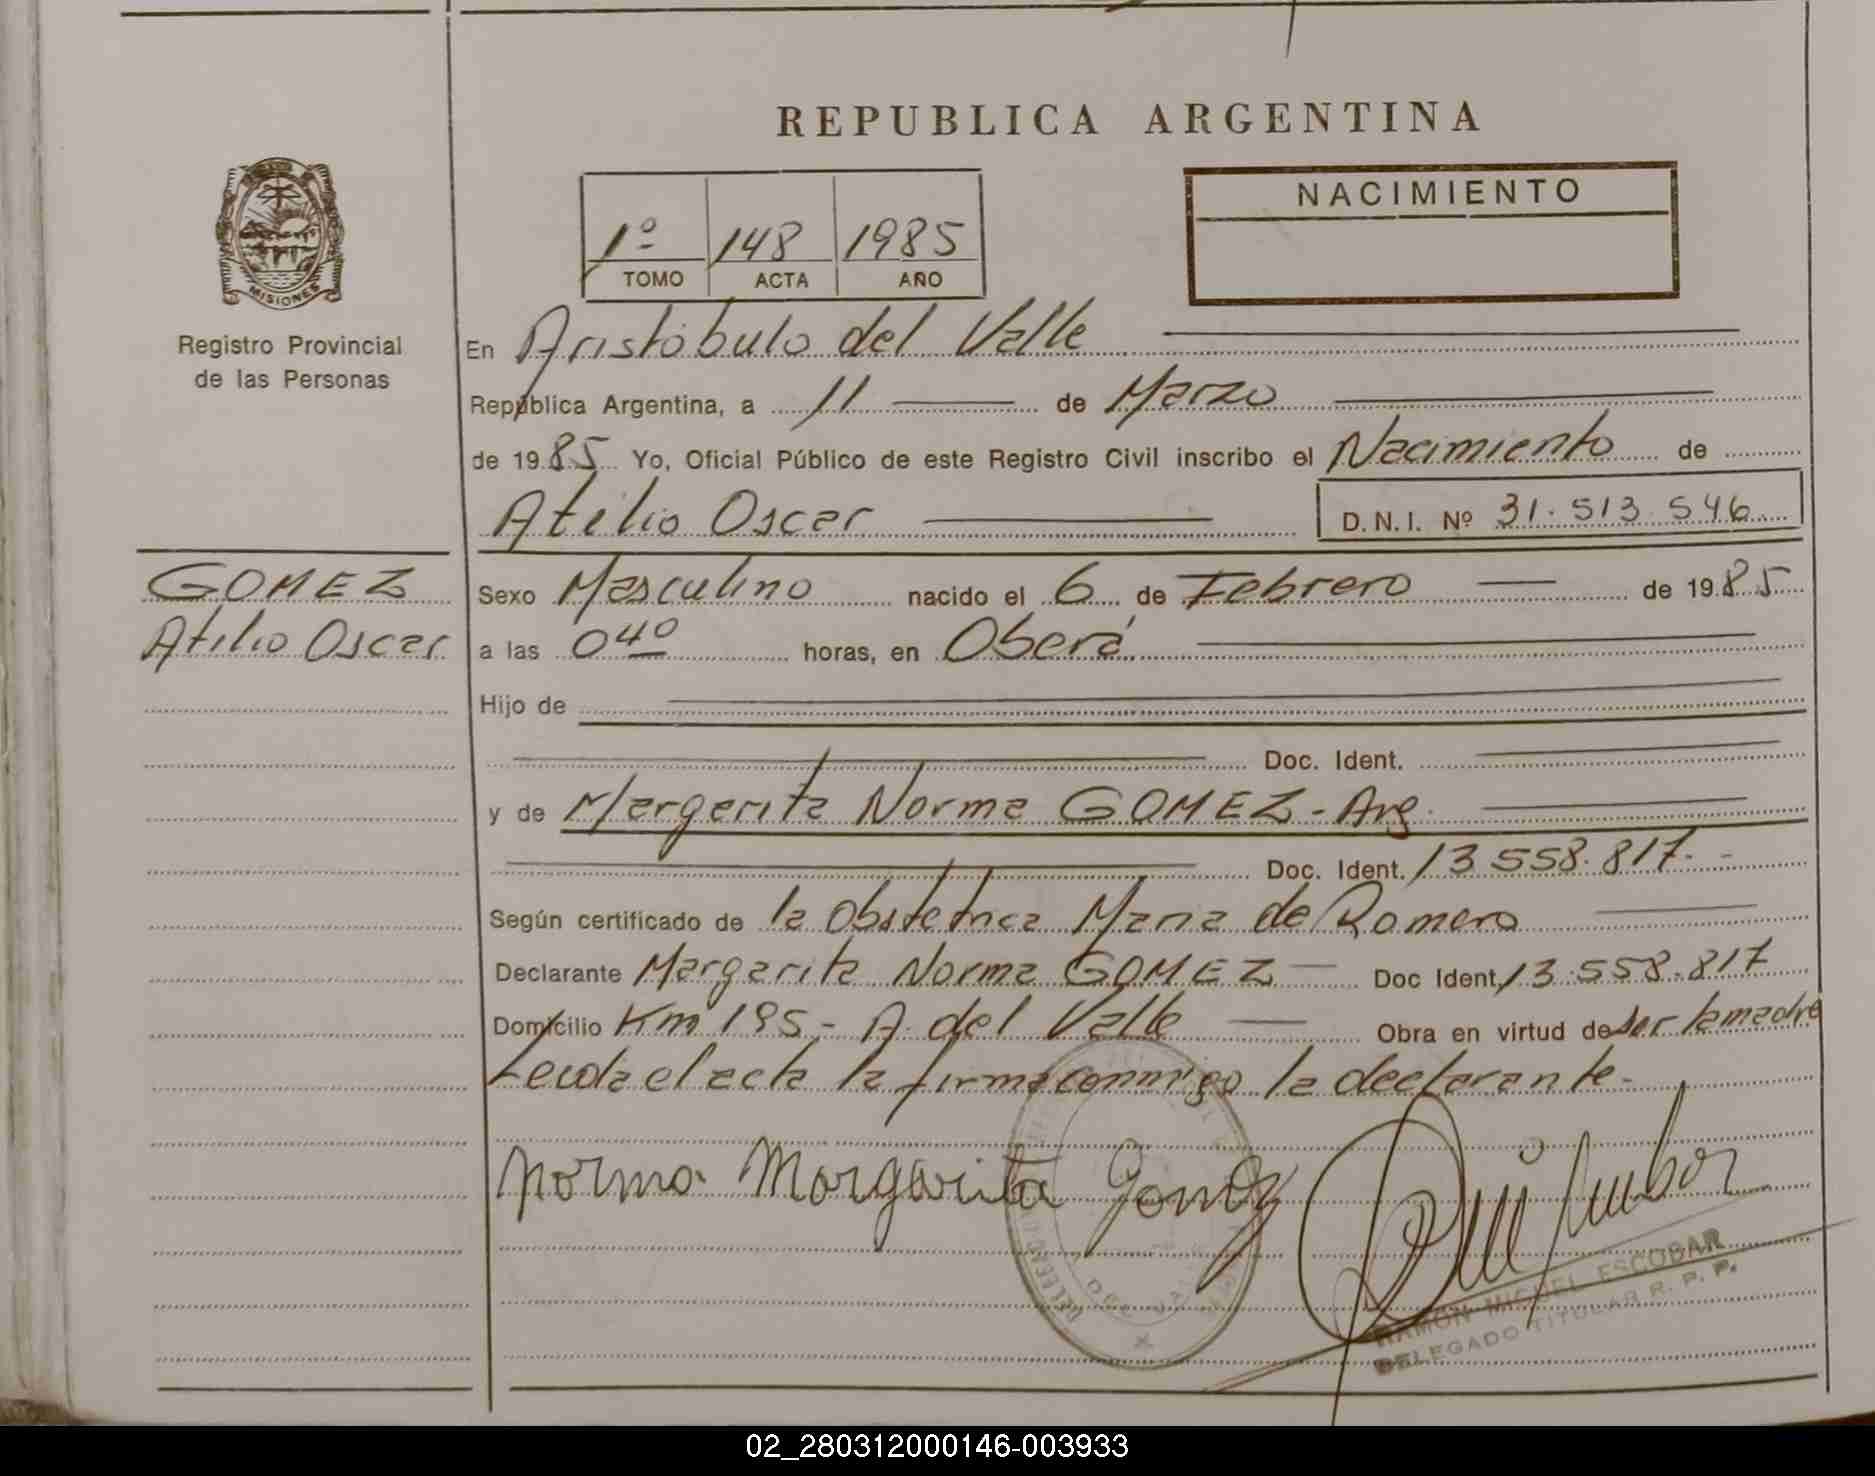 REPUBLICA ARGENTINA
MISIONES
Registro Provincial
de las Personas
1º 148 1985
TOMO ACTA AÑO
NACIMIENTO
En Aristóbulo del Valle
República Argentina, a 11 de Marzo
de 1985 Yo, Oficial Público de este Registro Civil inscribo el Nacimiento de
Atilio Oscar D.N.I. Nº 31.513.546
GOMEZ
Atilio Oscar
Sexo Masculino nacido el 6 de Febrero de 1985
a las 04º horas, en Oberá
Hijo de
Doc. Ident.
y de Margarita Norma GOMEZ - Arg.
Doc. Ident. 13.558.817.-
Según certificado de la Obstetrica Maria de Romero
Declarante Margarita Norma GOMEZ Doc Ident. 13.558.817
Domicilio Km 195 - A. del Valle Obra en virtud de ser la madre
Leida el acta la firma conmigo la declarante.-
Norma Margarita Gomez
RAMON MIGUEL ESCOBAR
DELEGADO TITULAR R. P. P.
02_280312000146-003933